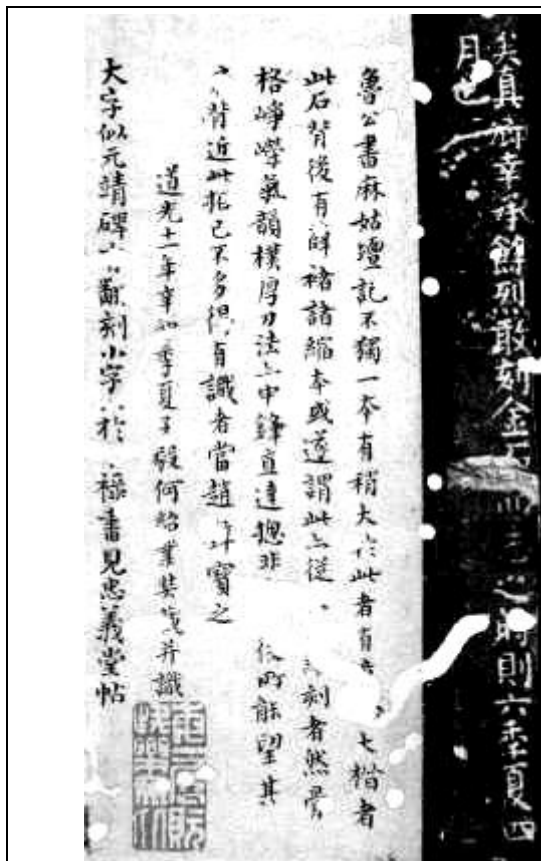 矣真卿幸承餘烈敢刻金石而志之時則六年夏四
月也
魯公書麻姑壇記不獨一本有稍大於此者有大楷者
此石背後有薛褚諸縮本或遂謂此亦從刻者然骨
格崢嶸氣韻樸厚刀法亦中鋒直達總非所能望其
背近此拓已不多得有識者當寶之
道光十一年辛卯季夏子毅何紹業裝成并識
大字似元靖碑翻刻小字於祿書見忠義堂帖